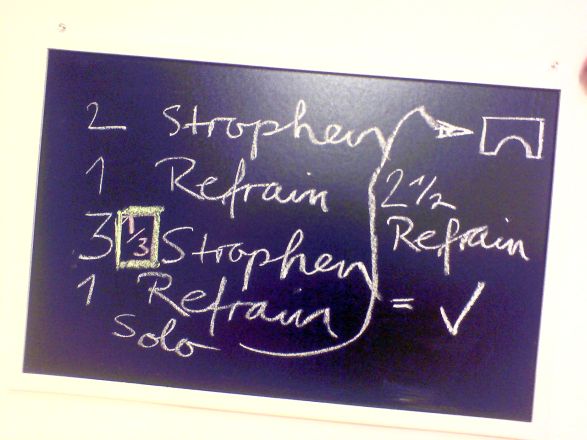 2 Strophen
1 Refrain
3 1/3 Strophen
1 Refrain
Solo
2 1/2
Refrain
= ✓